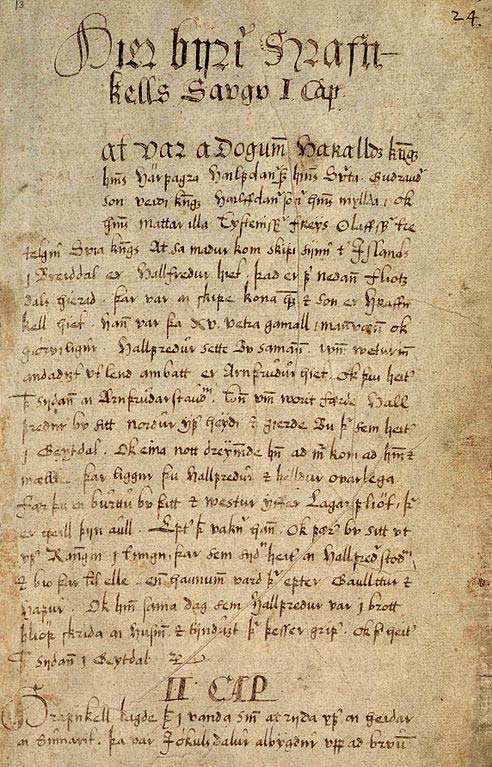 13
24.
Hier byri Hrafn-
kells Saugu I Cap
at var a dogum Haralldz kngs
hins Harfagra Halfdanar s hins Svarta. Gudraud
son veidi kngs Halfdanar s hins myllda. ok
hins mattar illa Eysteins s Freys Olafs s tre
telgiu Svia kngs. At sa madur kom skipi sinu t Islands
i Breiddal er Hallfredur hiet. þad er f nedan Fliotz
dals hierad. þar var a skipe kona hs & son er Hrafn
kell hiet. Hann var þa XV. vetra gamall. mannvæn ok
giorviligur. Hallfredur sette Bu saman. um veturin
andadizt utlend ambatt er Arnfrudur hiet. Ok þui heit
þ sydan a Arnfrudarstaudum. Enn um vorit færde Hall
fredur bu sitt nordur yfer heydi & gierde Bu þ sem heit
i Geytdal. Ok eina nott dreymde hn ad m kom ad hm &
mællte. þar liggur þu Hallfredur & helldur ovarlega
Fær þu a burttu bu þitt & westur yffer Lagarfliot. þ
er heill þijn aull. Ept þ vakn han. Ok fær bu sitt ut
yf Rangaa i Tungu. þar sem syd heit a Hallfredstod
& bio þar til elle. en haunum vard þ epter Gaulltur &
Hafur. Ok hin sama dag sem Hallfredur var i brott
fliop skrida a husin. & tynduzt þ þesser grip. Ok þ heit
þ sydan i Geytdal
II CAP
Hrafnkell lagde þ i vanda sin at ryda yf a heidar
a sumarit. þa var Jokulsdalur albygdur upp ad bruum